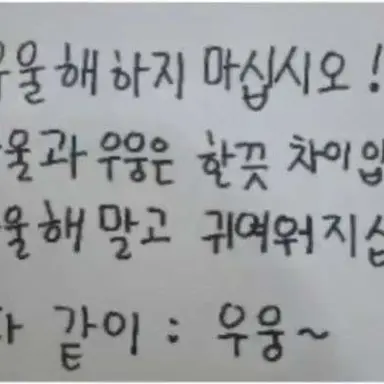 우울해하지 마십시오!
우울과 우웅은 한끗 차이입
우울해 말고 귀여워지십
다 같이 : 우웅~